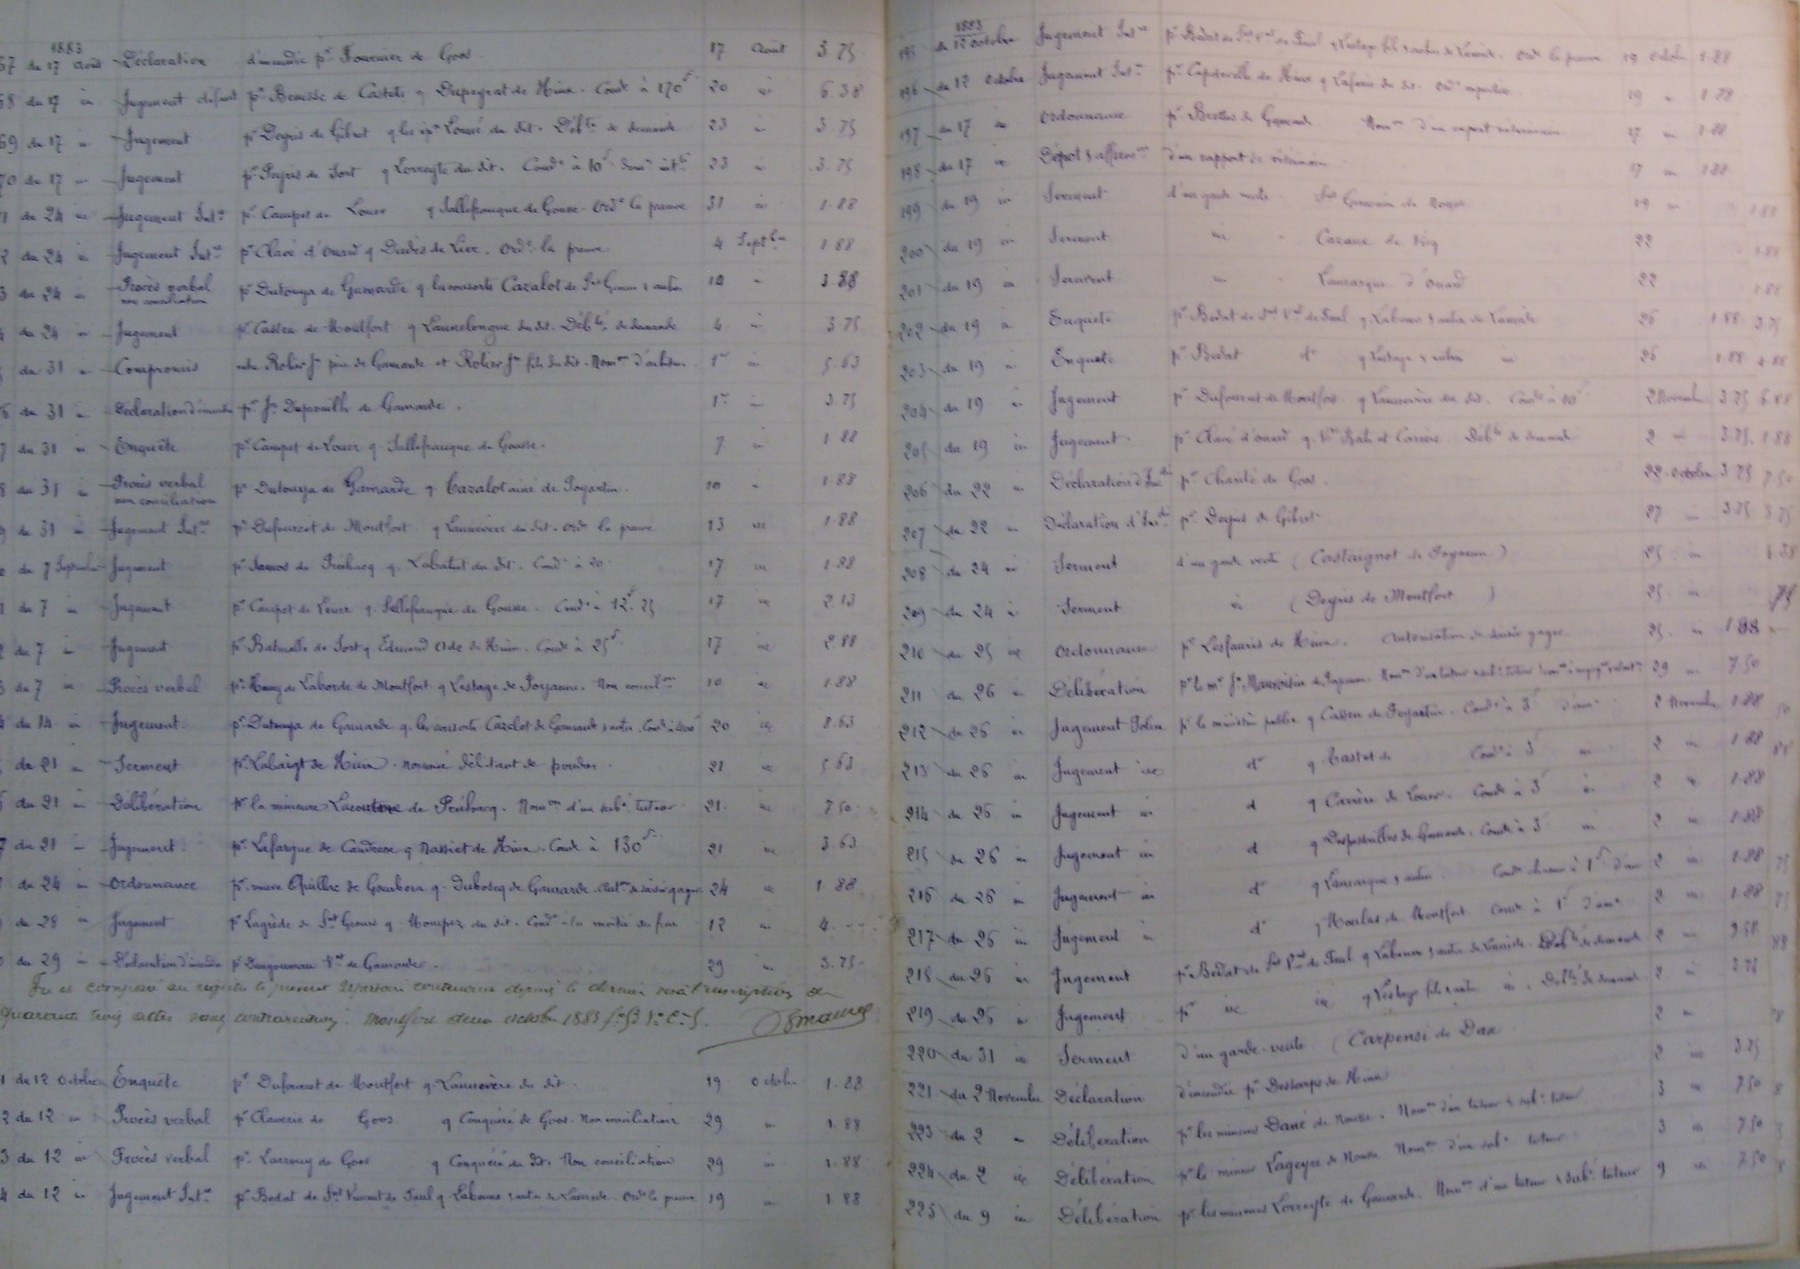 1883
67 du 17 août Déclaration d'incendie pr Fournier de Goos 17 août 3.75
68 du 17 in Jugement défaut pr Benesse de Castets q Dupeyrat de Hinx. Condn à 170f 20 in 6.38
69 du 17 in Jugement pr Degris de Gibret q les du dit. Débté de demande 23 in 3.75
70 du 17 in Jugement pr Peyris de Sort q Lorreyte du dit. Condn à 10f 23 in 3.75
1 du 24 in Jugement Intre pr Campet de Louer q Sallefranque de Gousse. Ordt la preuve 31 in 1.88
2 du 24 in Jugement Intre pr Clavé d'Onard q de Lier. Ordt la preuve 4 Septbre 1.88
3 du 24 in Procès verbal non conciliation pr Dutouya de Gamarde q les consorts Cazalot de St Geours & autres 10 in 3.88
4 du 24 in Jugement pr Castra de Montfort q Lannelongue du dit. Débté de demande 4 in 3.75
du 31 in Compromis entre père de Gamarde et fils du dit. Nomon d'arbitre 1er in 5.63
6 du 31 in Déclaration d'incendie pr Jn de Gamarde. 1er in 3.75
7 du 31 in Enquête pr Campet de Louer q. Sallefranque de Gousse. 7 in 1.88
8 du 31 in Procès verbal non conciliation pr Dutouya de Gamarde q Cazalot aîné de Poyartin. 10 in 1.88
9 du 31 in Jugement Intre pr Dufourcet de Montfort q Lannevère du dit. Ordt la preuve 13 in 1.88
du 7 Septembre Jugement pr de Préchacq q. Labatut du dit. Condn à 20 17 in 1.88
1 du 7 in Jugement pr Campet de Louer q. Sallefranque de Gousse. Condn à 12f.25 17 in 2.13
2 du 7 in Jugement pr de Sort q Edmond de Hinx. Condn à 25f 17 in 2.88
3 du 7 in Procès verbal pr de Laborde de Montfort q Lestage de Poyanne. Non concilon 10 in 1.88
4 du 14 in Jugement pr Dutouya de Gamarde q. les consorts Cazalot de Gamarde & autres. Condn à 20 in 8.63
du 21 in Serment pr Labaigt de Hinx. nommé débitant de poudre. 21 in 5.63
6 du 21 in Délibération pr la mineure Lacouture de Préchacq. Nomon d'un subé tuteur 21 in 7.50
7 du 21 in Jugement pr Lafargue de Candresse q Massiet de Hinx. Condn à 130f 21 in 3.63
du 24 in Ordonnance pr veuve de Gourbera q. Duboscq de Gamarde. Auton de saisie gagerie 24 in 1.88
du 28 in Jugement pr Lagrède de St Geours q. du dit. Condn à la moitié des frais 12 in 4.
du 29 in Déclaration d'incendie pr Vve de Gamarde. 29 in 3.75
Vu et comparé au registre le présent répertoire contenant depuis le dernier visa l'inscription de
quarante trois actes sans contravention. Montfort deux octobre 1883 fo 53 Vo Ce 5.
1 du 12 Octobre Enquête pr Dufourcet de Montfort q. Lannevère du dit. 19 Octobre 1.88
2 du 12 in Procès verbal pr Claverie de Goos q Conquéré de Goos. Non conciliation 29 in 1.88
3 du 12 in Procès verbal pr. Larrouy de Goos q Conquéré du dit. Non conciliation 29 in 1.88
4 du 12 in Jugement Intre pr Bedat de St Vincent de Paul q Labanne & autres de Laurède. Ordt la preuve 19 in 1.88
1883
195 du 12 Octobre Jugement Intre pr Bedat de St Vent de Paul q Lestage fils & autres de Laurède. Ordt la preuve 19 Octobre 1.88
196 du 12 Octobre Jugement Intre pr Capdeville de Hinx q Laferrère du dit. Ordt expertise 19 in 1.88
197 du 17 in Ordonnance pr de Gamarde Nomon d'un expert vétérinaire 17 in 1.88
198 du 17 in Dépôt & affirmon d'un rapport de vétérinaire 17 in 1.88
199 du 19 in Serment d'un garde vente. de Nousse 19 in 1.88
200 du 19 in Serment in Cazaux de Vicq 22 1.88
201 du 19 in Serment in Lamarque d'Onard 22 1.88
202 du 19 in Enquête pr Bedat de St Vent de Paul q Labanne & autres de Laurède 26 1.88 3.75
203 du 19 in Enquête pr Bedat do q Lestage & autres in 26 1.88 1.88
204 du 19 in Jugement pr Dufourcet de Montfort q Lannevère du dit. Condn à 10f 2 Novembre 3.75 6.88
205 du 19 in Jugement pr Clavé d'Onard q. et Carrère. Débté de demande 2 in 3.75 1.88
206 du 22 in Déclaration d'Incdie pr Charité de Goos. 22 Octobre 3.75 7.50
207 du 22 in Déclaration d'Incdie pr Degris de Gibret 27 in 3.75 3.75
208 du 24 in Serment d'un garde vente (Castaignet de Poyanne) 25 in 4.38
209 du 24 in Serment in (Degris de Montfort) 25 in 75
210 du 25 in Ordonnance pr Lesfauris de Hinx. Autorisation de saisie gagerie 25 in 1.88
211 du 26 in Délibération pr le mr Jn de Poyanne. Nomon d'un tuteur & subé tuteur 29 in 7.50
212 du 26 in Jugement Police pr le ministère public q Cassen de Poyartin. Condn à 3f d'amde 2 Novembre 1.88 50
213 du 26 in Jugement in do q Castet de Condn à 3f in 2 in 1.88 88
214 du 26 in Jugement in do q Carrère de Louer. Condn à 3f in 2 in 1.88
215 du 26 in Jugement in do q de Gamarde. Condn à 3f in 2 in 1.88
216 du 26 in Jugement in do q Lamarque & autres. Condn chacun à 1f d'am 2 in 1.88 75
217 du 26 in Jugement in do q Moulas de Montfort. Condn à 1f d'amde 2 in 1.88 75
218 du 26 in Jugement pr Bedat de St Vent de Paul q Labanne & autres de Laurède. Débté de demande 2 in 9.68 88
219 du 26 in Jugement pr in in q Lestage fils & autres in. Débté de demande 2 in 3.75
220 du 31 in Serment d'un garde-vente (Carpensé de Dax 2 in 8
221 du 2 Novembre Déclaration d'incendie pr Descamps de Hinx 2 in 3.75
223 du 2 in Délibération pr les mineurs Dané de Nousse. Nomon d'un tuteur & subé tuteur 3 in 7.50 8
224 du 2 in Délibération pr le mineur Lageyre de Nousse. Nomon d'un subé tuteur 3 in 7.50 3
225 du 9 in Délibération pr les mineurs Lorreyte de Gamarde. Nomon d'un tuteur & subé tuteur 9 in 7.50 8